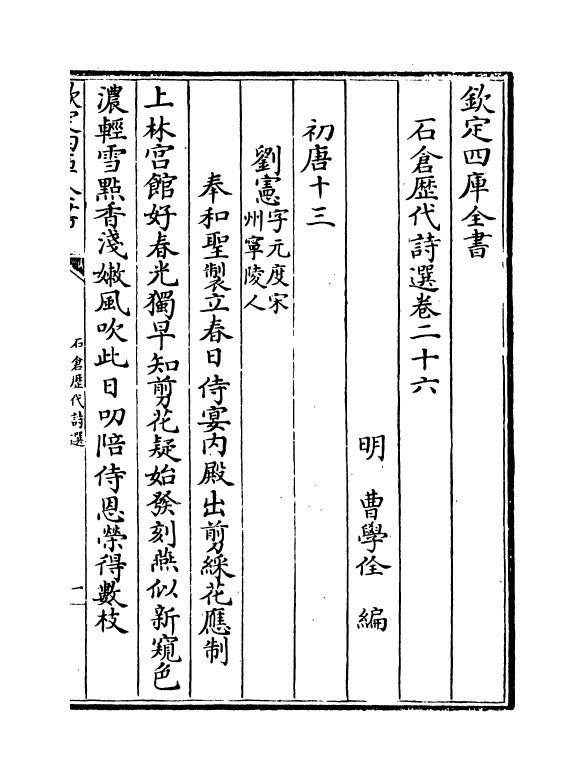 欽定四庫全書
石倉歴代詩選卷二十六
明 曹學佺 編
初唐十三
劉憲字元度宋
州寧陵人
奉和聖製立春日侍宴内殿出剪綵花應制
上林宫館好春光獨早知剪花疑始發刻燕似新窺色
濃輕雪㸃香淺嫩風吹此日叨陪侍恩榮得數枝
欽定四庫全書
石倉歴代詩選